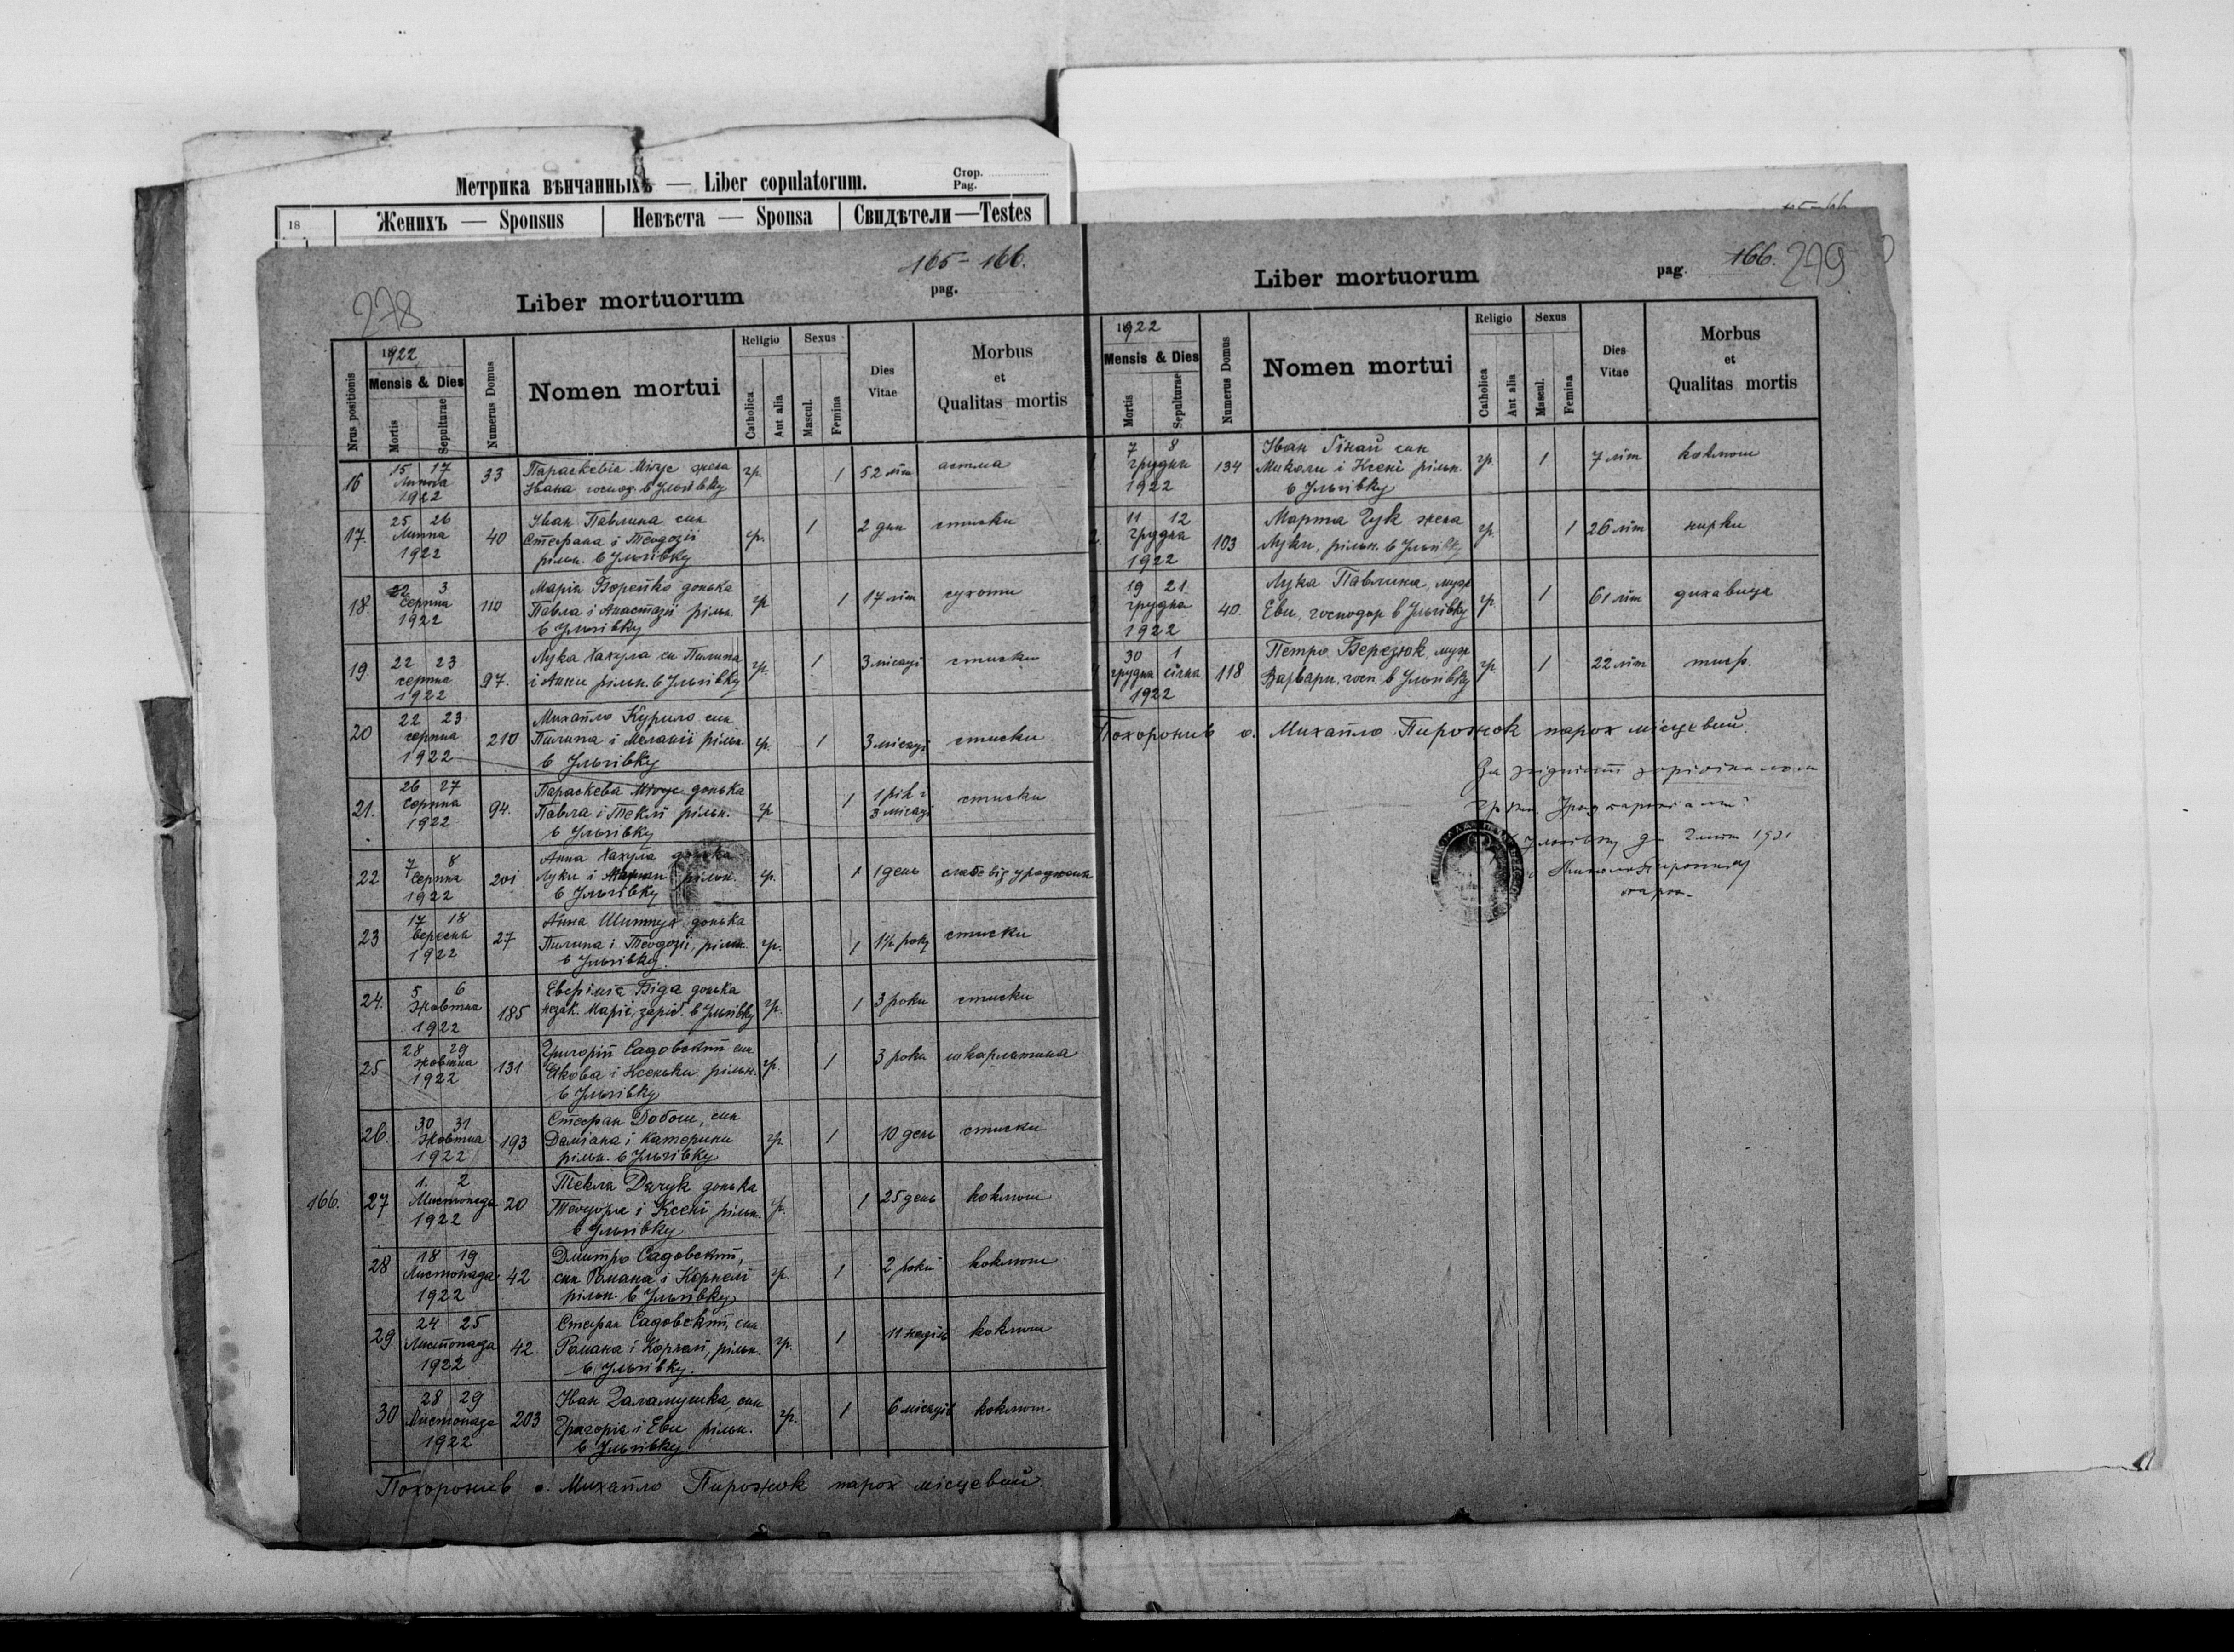 Метрика вѣнчанныхъ — Liber copulatorum.
Стор.
Pag.
18
Женихъ — Sponsus
Невѣста — Sponsa
Свидѣтели — Testes
278
Liber mortuorum
165-166.
pag.
Nrus positionis
1922
Mensis & Dies
Mortis
Sepulturae
Numerus Domus
Nomen mortui
Religio
Catholica
Aut alia
Sexus
Mascul.
Femina
Dies
Vitae
Morbus
et
Qualitas mortis
16
15 17
Липня
1922
33
Параскевія жена
Івана господ. в Ільківку
гр.
1
52 літ
астма
17.
25 26
Липня
1922
40
Іван Павлина син
Стефана і Теодозії
рільн. в Ільківку
гр.
1
2 дни
стиски
18.
3
серпня
1922
110
Марія Борейко донька
Павла і Анастазії рільн.
в Ільківку
гр
1
17 літ
сухоти
19.
22 23
серпня
1922
97.
Лука Хахула си Пилипа
і Анни рільн. в Ільківку
гр.
1
3 місяці
стиски
20
22 23
серпня
1922
210
Михайло Курило син
Пилипа і Меланії рільн
в Ільківку
гр.
1
3 місяці
стиски
21.
26 27
серпня
1922
94.
Параскева донька
Павла і Теклі рільн.
в Ільківку
гр
1
1 рік і
3 місяці
стиски
22
7 8
серпня
1922
201
Анна Хахула донька
Луки і рільн.
в Ільківку
гр.
1
1 день
слабе від уродження
23
17 18
вересня
1922
27
Анна донька
Пилипа і Теодозії, рільн.
в Ільківку.
гр.
1
1½ року
стиски
24.
5 6
Жовтня
1922
185
Біда донька
незак. Марії, заріб. в Ільківку
гр.
1
3 роки
стиски
25
28 29
жовтня
1922
131
Григорій Садовский син
Якова і Ксеньки рільн.
в Ільківку
гр.
1
3 роки
шкарлатина
26.
30 31
Жовтня
1922
193
Стефан Добош, син
Даміана і Катерини
рільн. в Ільківку
гр.
1
10 день
стиски
166.
27
1. 2
Листопада
1922
20
Текля донька
Теодора і Ксені рільн.
в Ільківку
гр.
1
25 день
коклюш
28
18 19
Листопада
1922
42
Дмитро Садовский,
син Романа і Корнелі
рільн. в Ільківку
гр.
1
2 роки
коклюш
29.
24 25
Листопада
1922
42
Стефан Садовский, син
Романа і Корнелі, рільн.
в Ільківку.
гр.
1
11 неділь
коклюш
30
28 29
Листопада
1922
203
Іван Галамушка, син
Григорія і Еви рільн.
в Ільківку.
гр.
1
6 місяців
коклюш
Похоронив о. Михайло Пирожок парох місцевий.
Liber mortuorum
pag. 166.
279
1922
Mensis & Dies
Mortis
Sepulturae
Numerus Domus
Nomen mortui
Religio
Catholica
Aut alia
Sexus
Mascul.
Femina
Dies
Vitae
Morbus
et
Qualitas mortis
7 8
грудня
1922
134
Іван син
Миколи і Ксені рільн.
в Ільківку
гр.
1
7 літ
коклюш
11 12
грудня
1922
103
Марта жена
Луки, рільн. в Ільківку
гр.
1
26 літ
нирки
19 21
грудня
1922
40.
Лука Павлина, муж
Еви, господар в Ільківку
гр.
1
61 літ
дихавиця
30 1
грудня січня
1922
118
Петро Березюк, муж
Варвари, госп. в Ільківку
гр.
1
22 літ
тиф.
Похоронив о. Михайло Пирожок парох місцевий.